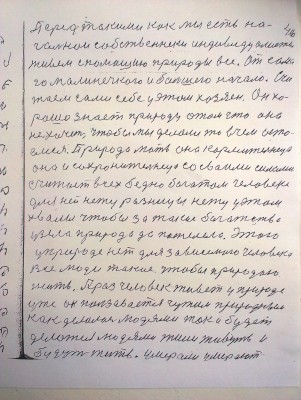 Перед такими как мы есть на- 46
чальном собственнеи индивидуалиста
живем спомощию природы все. От само
го малинечкого и большего начало. Счи
таем сами себе уэтом хозяен. Он хо-
рошо знает природу отом что она
нехочет, чтобы мы делали то вчем она
Природа мать она кормителница
она и сохронителница со своими силами
считает всех бедно богатом человека
для неё нету разницы нету уэтом
хвали чтобы за такое богатство
узела природа да потелела. Этого
уприроде нет для зависимию человека
все люди такие чтобы природою
жить. Араз человек живет у природе
уже он показвается чужим природным
как делалоя людями так и будет
делатся людями жили живуть и
будут жить. умерали умерают